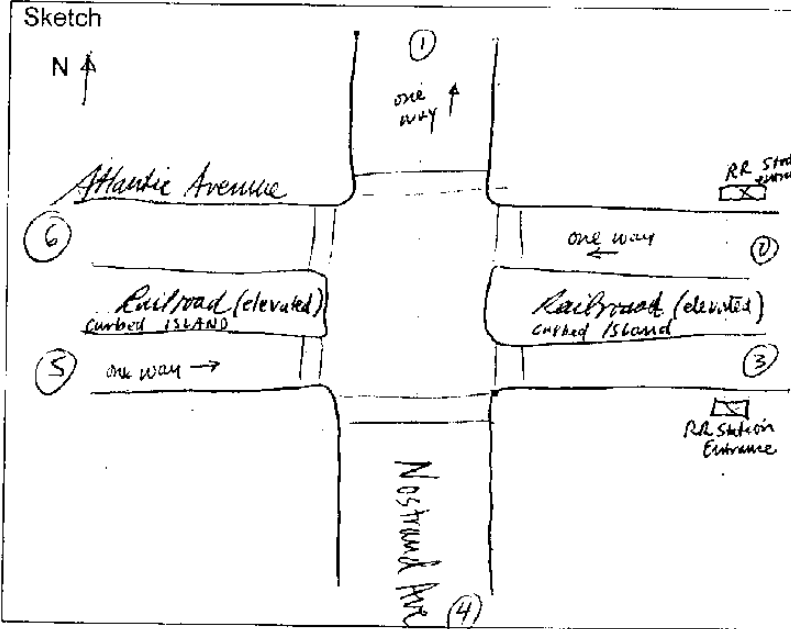 Sketch
N
1
one
way
Atlantic Avenue
RR
6
one way
Railroad (elevated)
curbed ISLAND
Railroad (elevated)
curbed Island
5
one way
3
RR Station
Entrance
Nostrand Ave
4